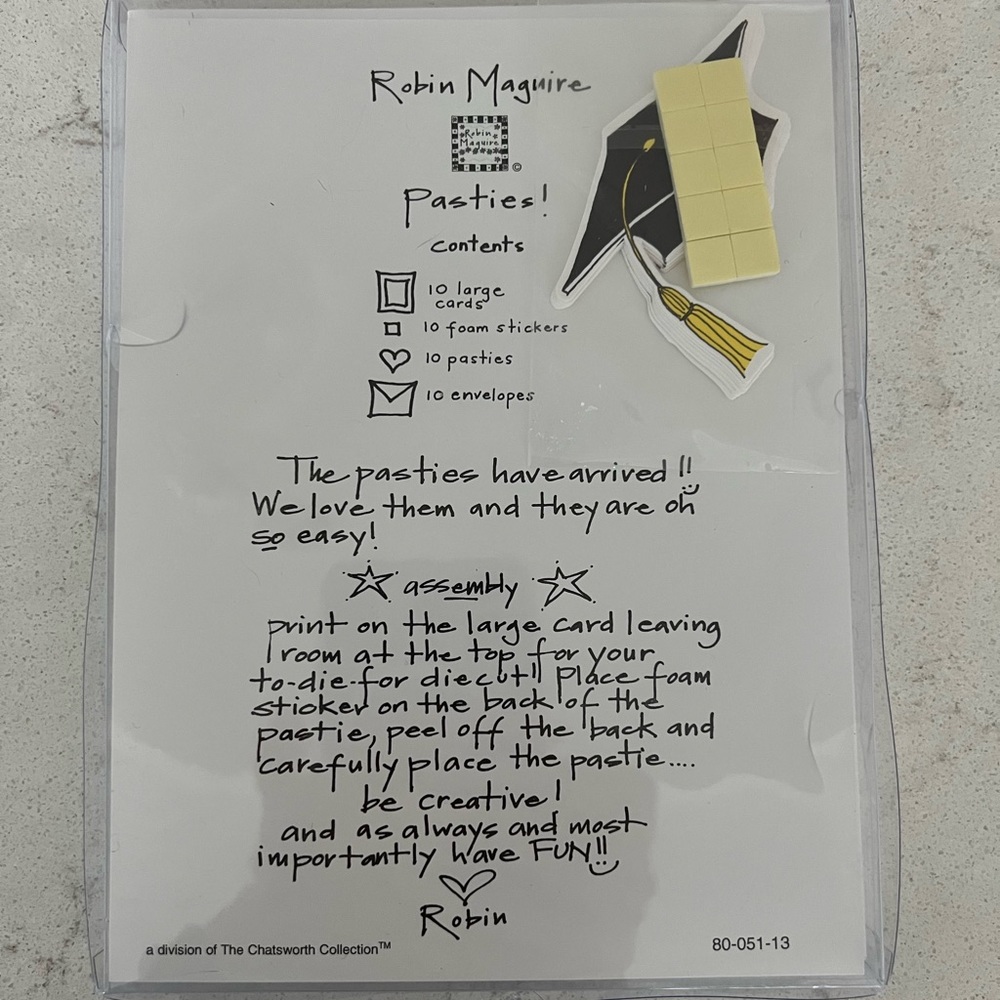 Robin Maguire
Robin
Maguire
©
Pasties!
contents
10 large
cards
10 foam stickers
10 pasties
10 envelopes
The pasties have arrived!!
We love them and they are oh
so easy!
assembly
print on the large card leaving
room at the top for your
to-die-for diecut!! Place foam
sticker on the back of the
pastie, peel off the back and
carefully place the pastie....
be creative!
and as always and most
importantly have FUN!!
Robin
a division of The Chatsworth Collection™
80-051-13